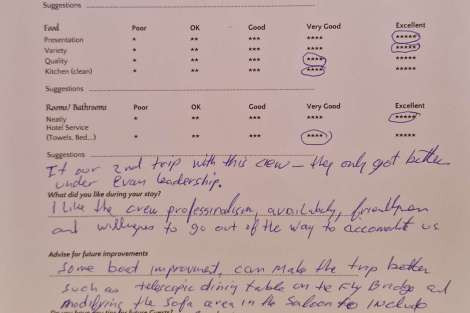 Suggestions
Food Poor OK Good Very Good Excellent
Presentation * ** *** **** *****
Variety * ** *** **** *****
Quality * ** *** **** *****
Kitchen (clean) * ** *** **** *****
Suggestions
Rooms/ Bathrooms Poor OK Good Very Good Excellent
Neatly * ** *** **** *****
Hotel Service
(Towels, Bed...) * ** *** **** *****
Suggestions
It our 2nd trip with this crew - they only got better
under Evan leadership.
What did you like during your stay?
I like the crew professionalism, availability,
and willigness to go out of the way to us
Advise for future improvements
Some boat improvment, can make the trip better
such as telescopic dining table on the Fly Bridge and
modifying the sofa area in the Saloon to Include